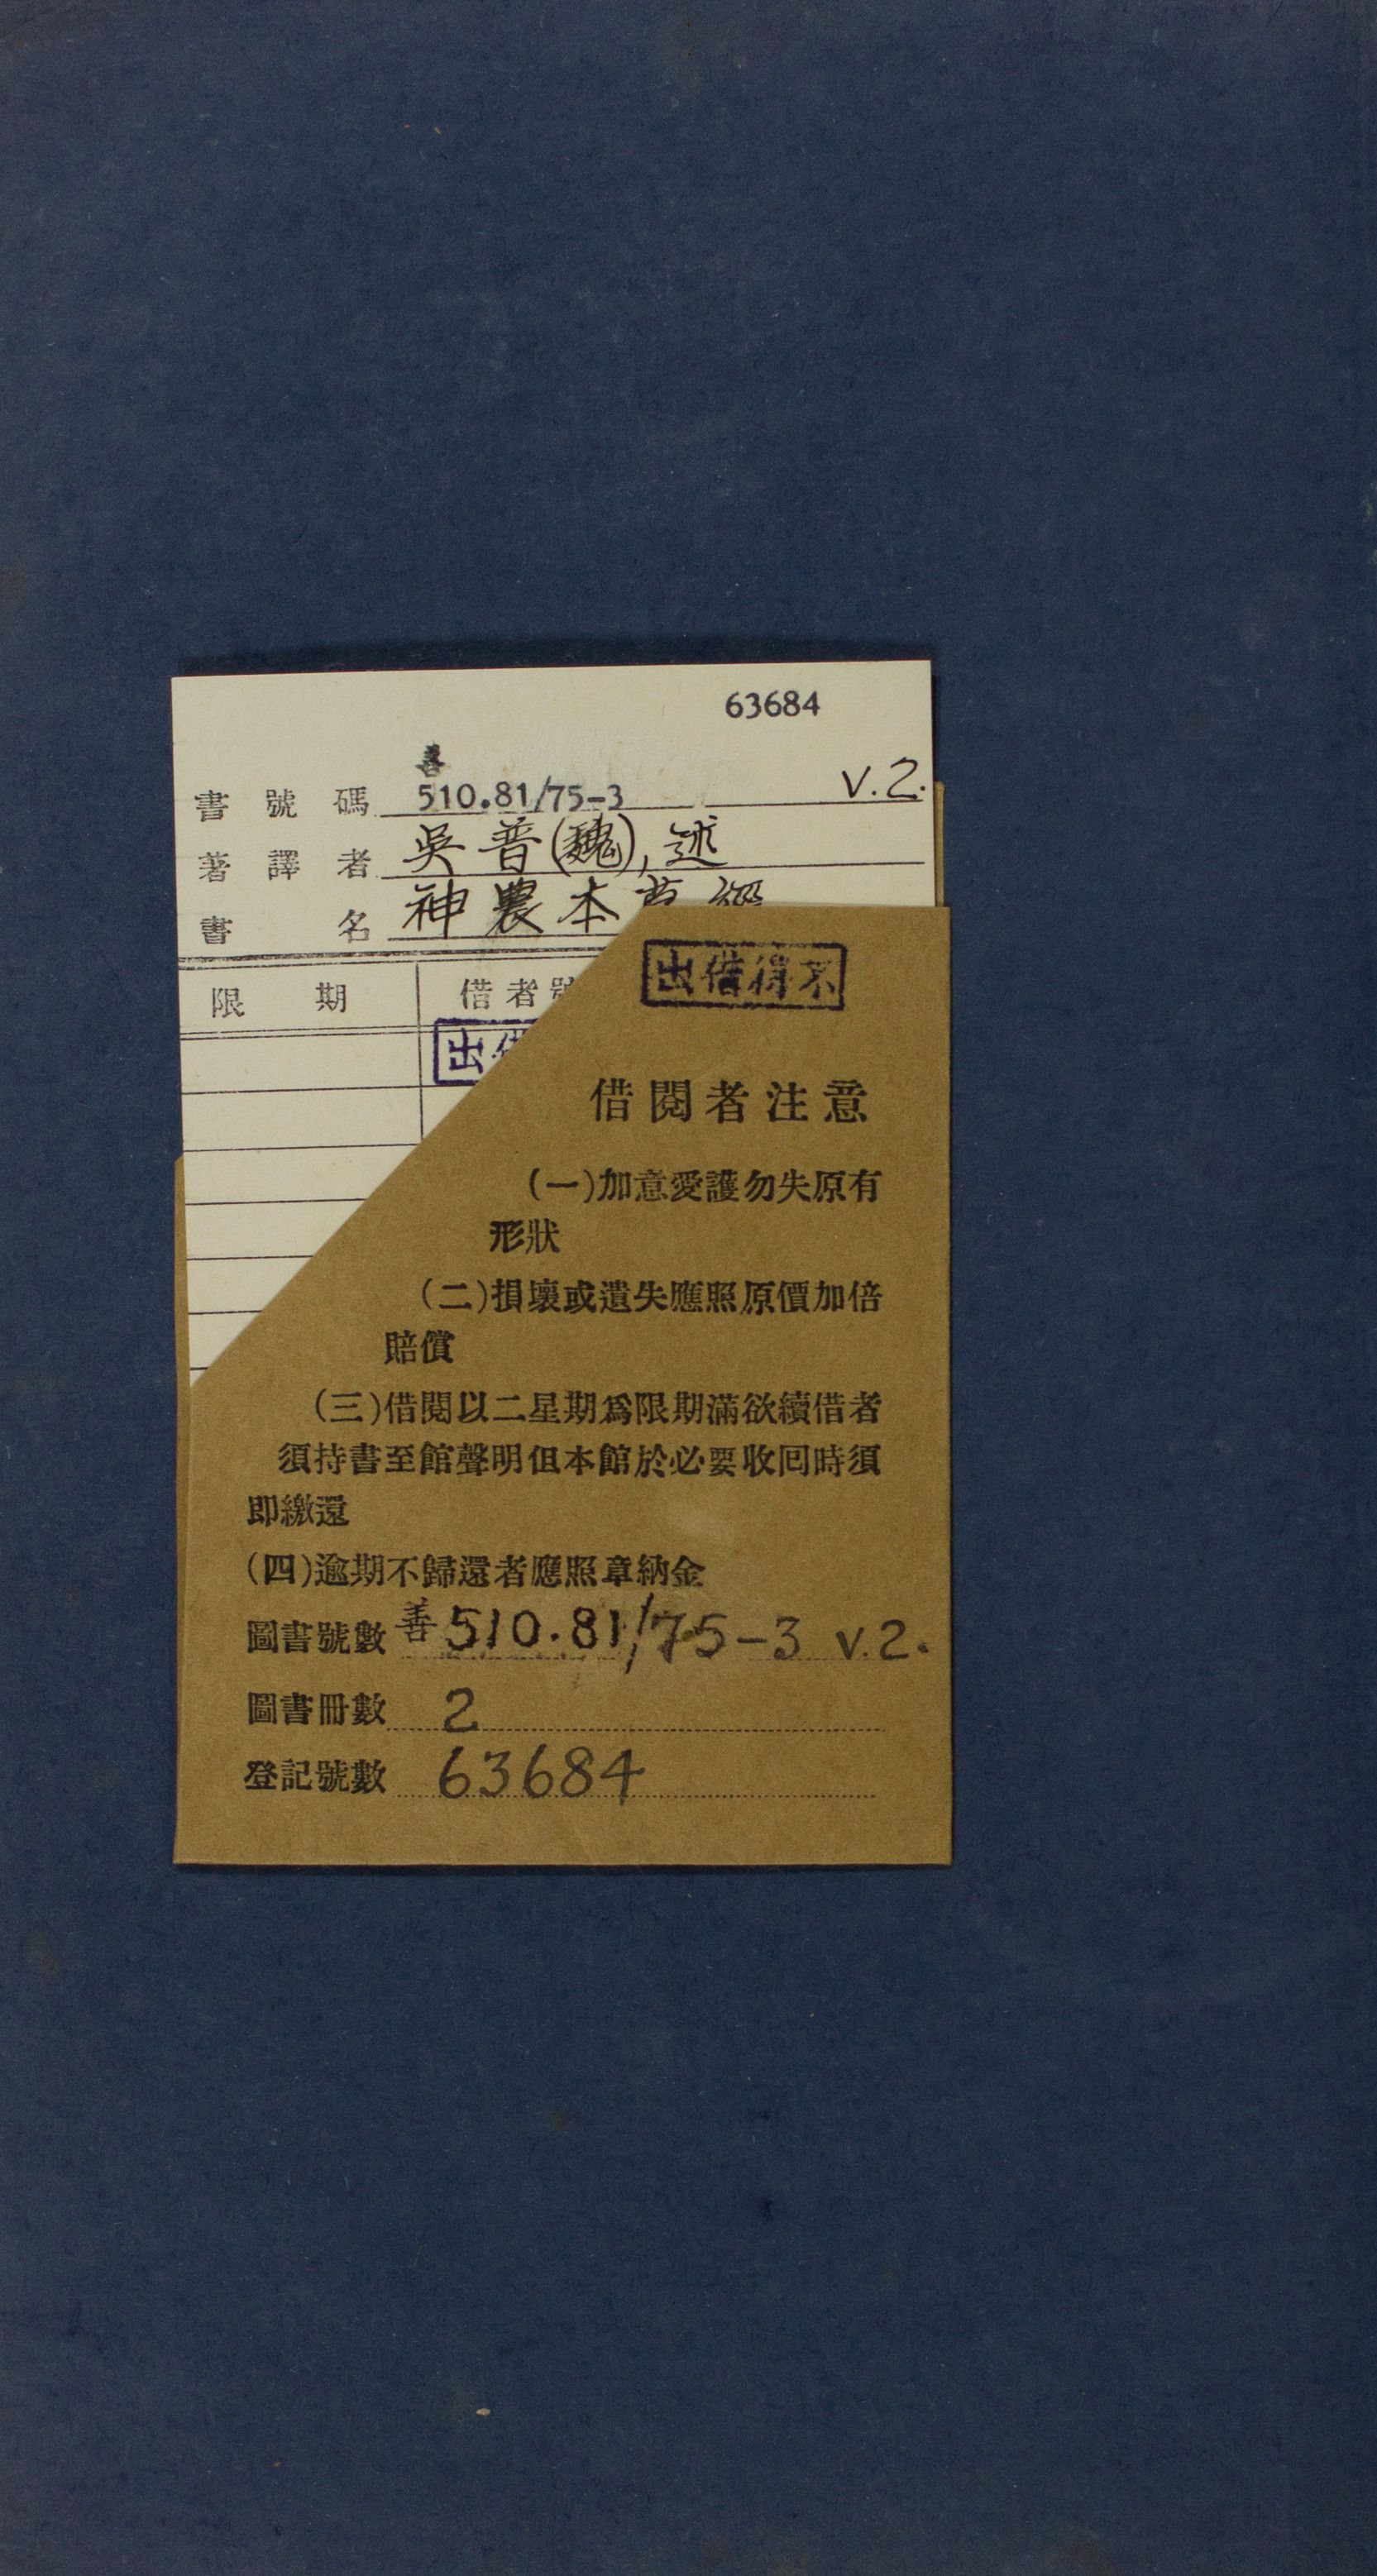 63684
善
書號碼 510.81/75-3 v.2.
著譯者 吳普(魏),述
書名 神農本草經
限期 借者號
出借
出借得不
借閱者注意
(一)加意愛護勿失原有
形狀
(二)損壞或遺失應照原價加倍
賠償
(三)借閱以二星期爲限期滿欲續借者
須持書至館聲明但本館於必要收回時須
即繳還
(四)逾期不歸還者應照章納金
圖書號數 善510.81/75-3 v.2.
圖書冊數 2
登記號數 63684